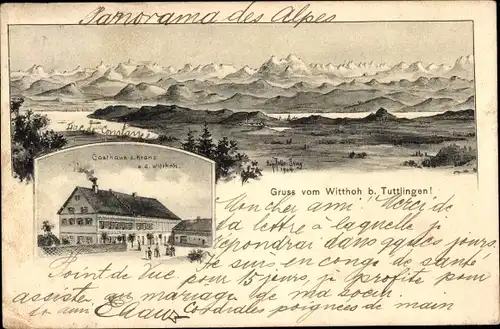 Panorama des Alpes
Lac de Constance
Gasthaus z. Kranz
a. d. Witthoh.
Gruss vom Witthoh b. Tuttlingen!
Mon cher ami! Merci de
la lettre à laquelle je
repondrai dans qques jours.
Je suis en congé de santé
Point de Vue pour 15 jours, je profite pour
assister au mariage de ma soeur.
Cordiales poignées de main